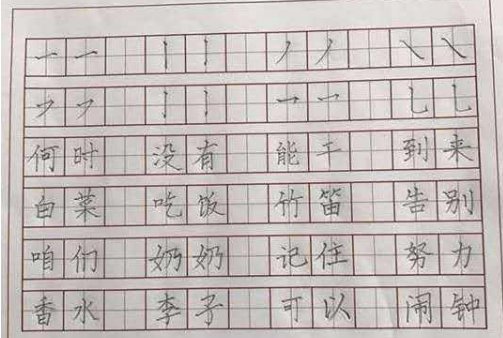 一一 丨丨 丿丿 ㇏㇏
何时 没有 能干 到来
白菜 吃饭 竹笛 告别
咱们 奶奶 记住 努力
香水 李子 可以 闹钟